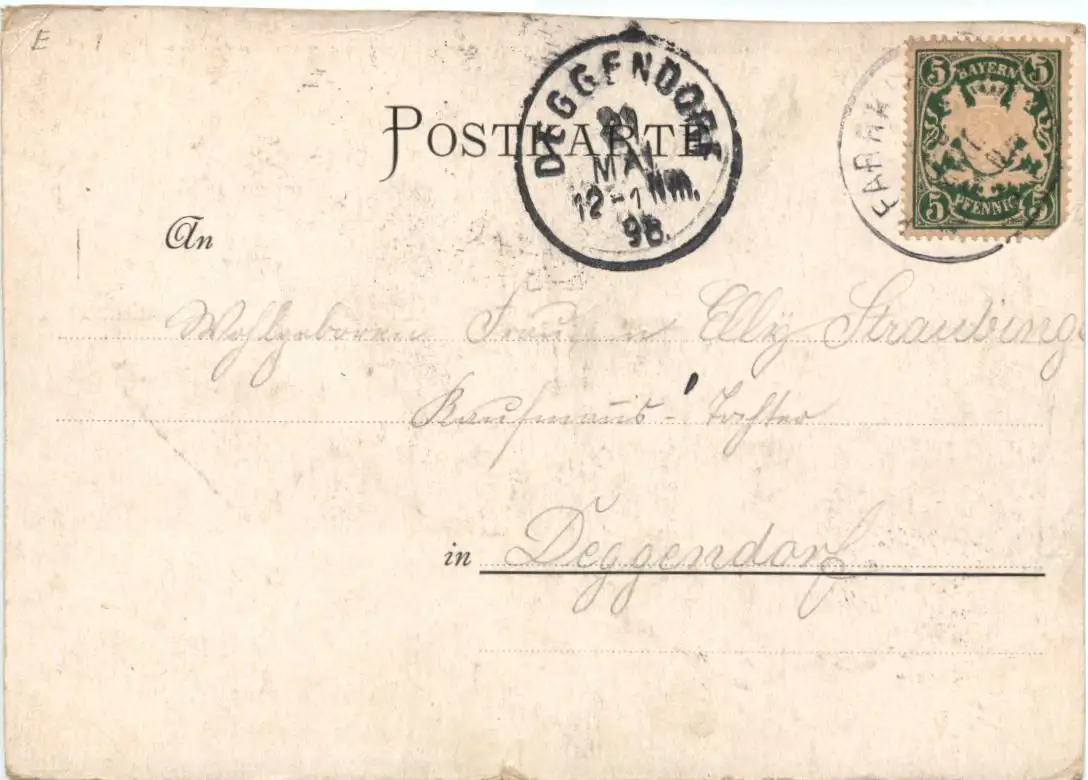 E
POSTKARTE
DEGGENDORF
MAI
12-1 Nm.
98.
BAYERN
5 5
5 PFENNIG 5
An
Wohlgeboren Elly Straubing
Kaufmanns- Tochter
in Deggendorf